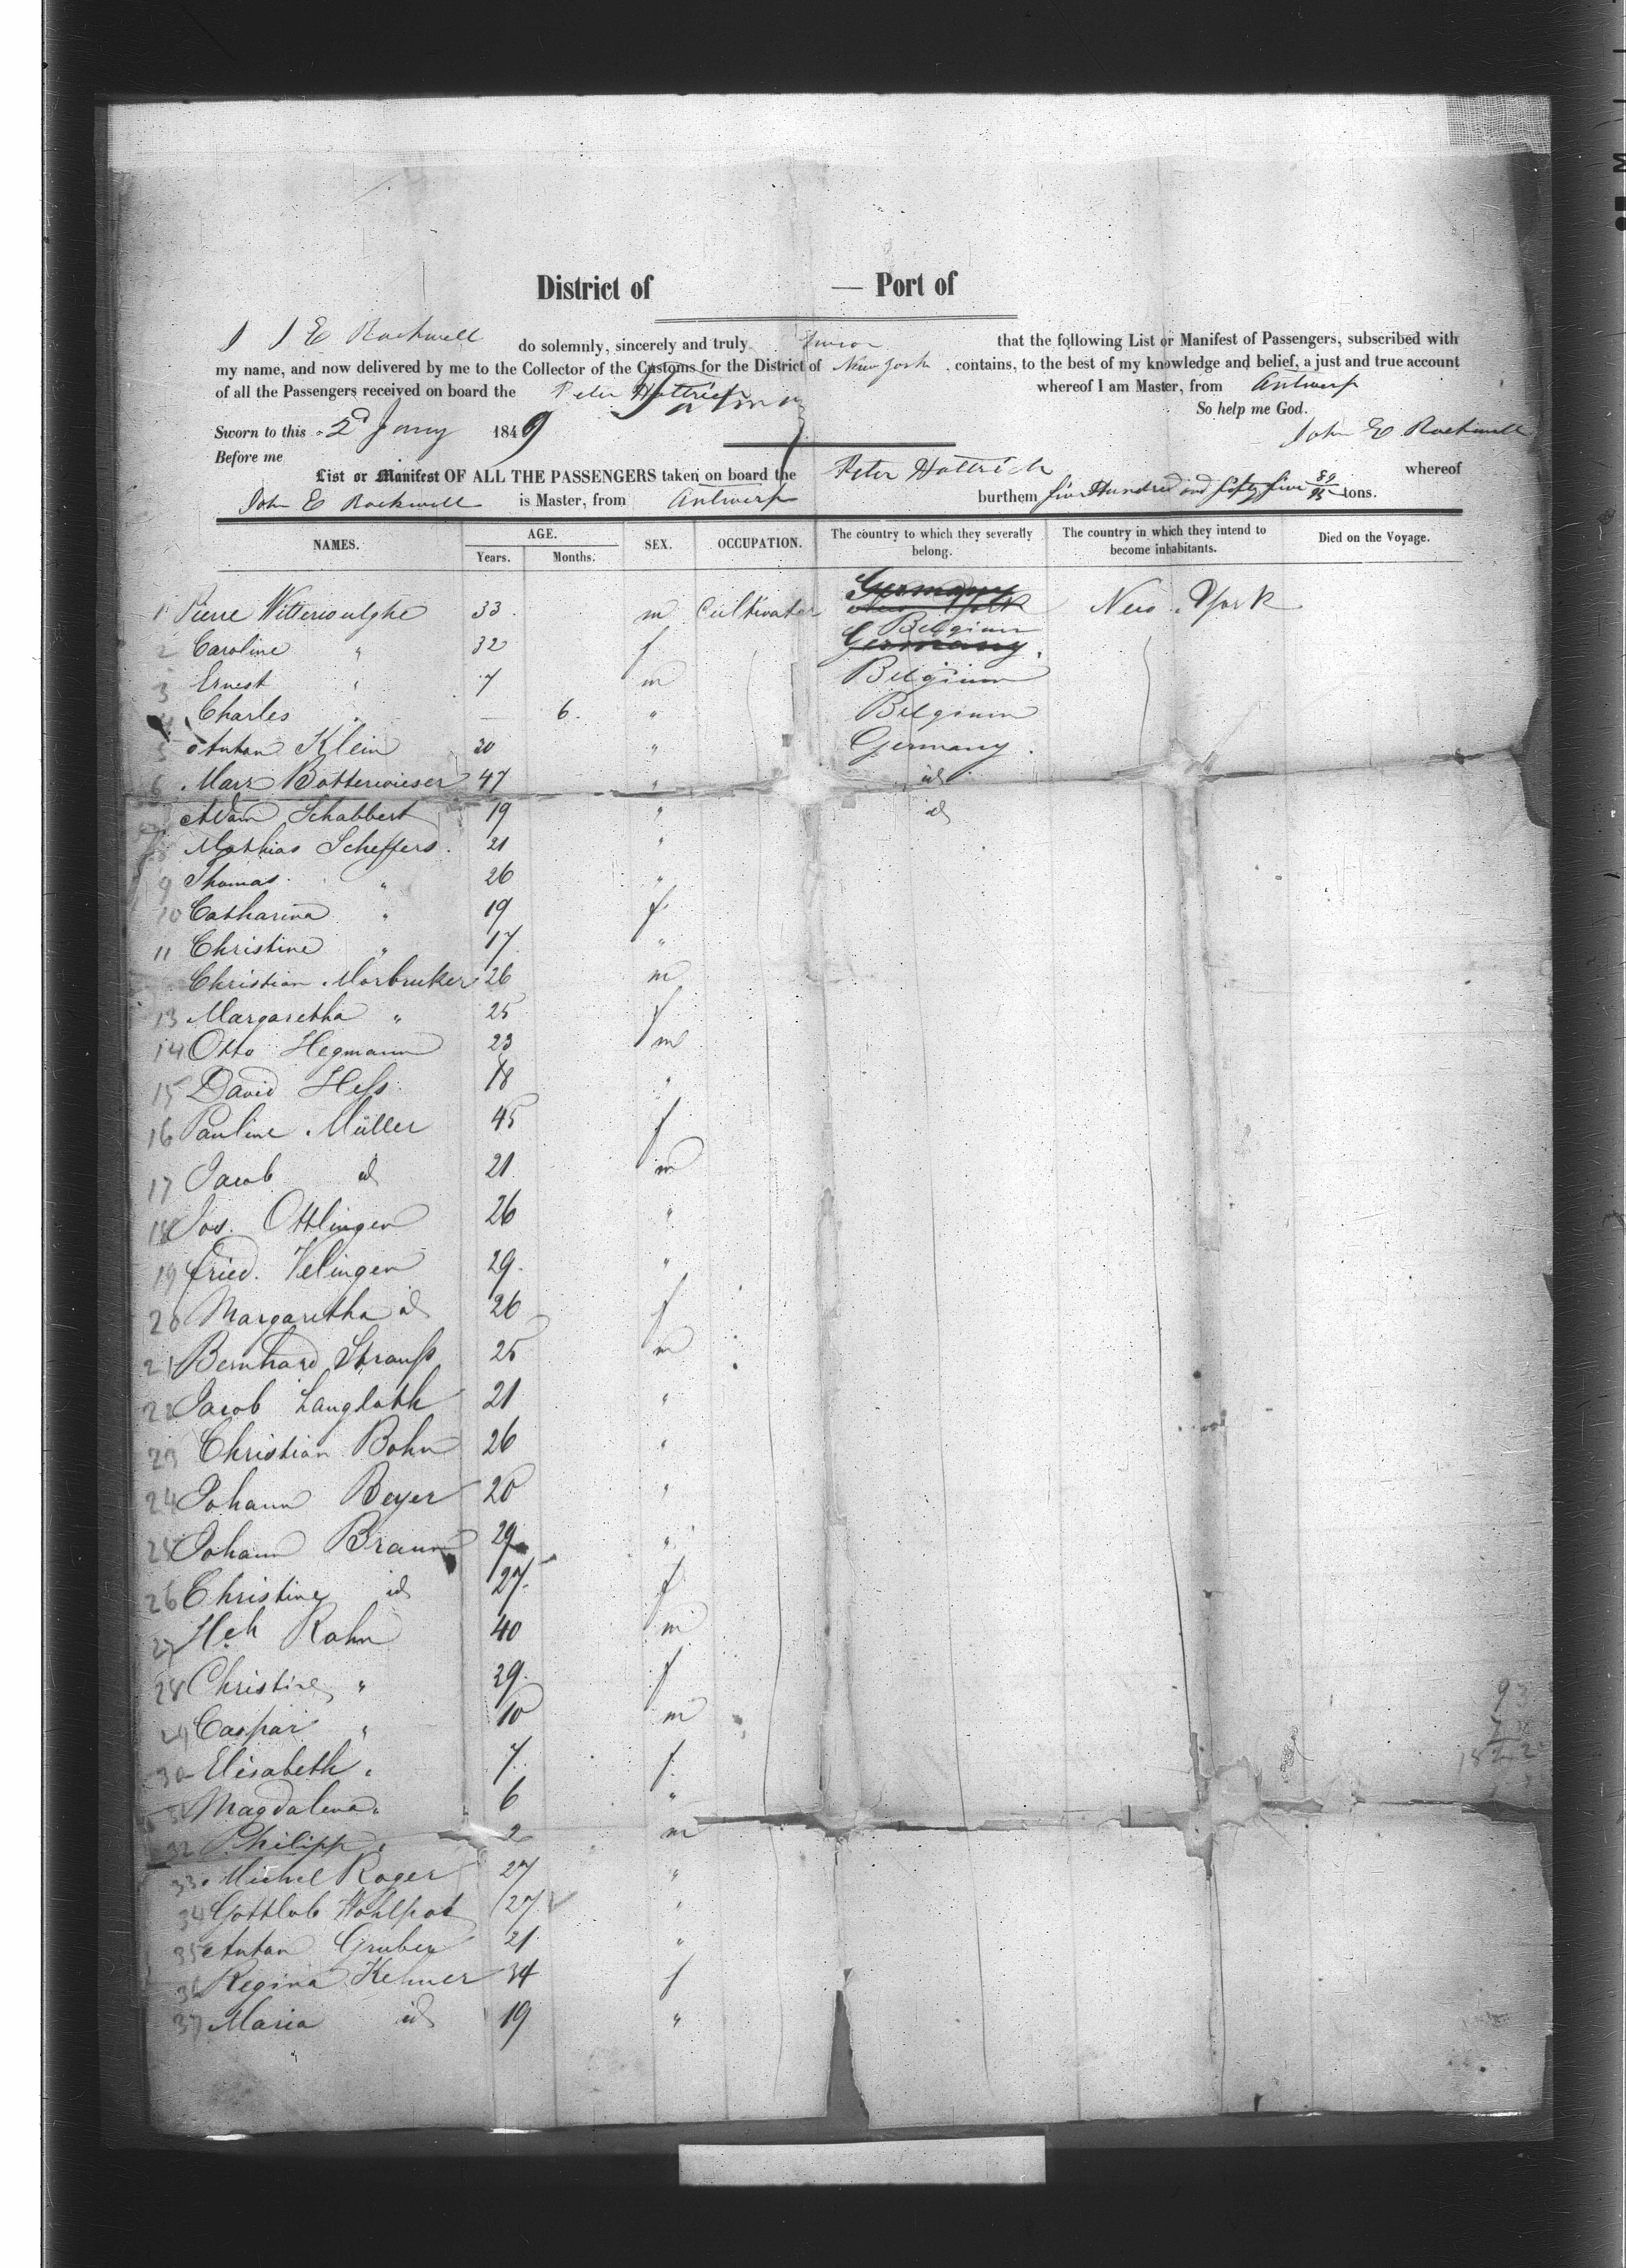 District of — Port of
I J E Rockwell do solemnly, sincerely and truly swear that the following List or Manifest of Passengers, subscribed with
my name, and now delivered by me to the Collector of the Customs for the District of New York, contains, to the best of my knowledge and belief, a just and true account
of all the Passengers received on board the Peter Hattrick whereof I am Master, from Antwerp
So help me God.
Sworn to this 2d Jany 1849
John E Rockwell
Before me
List or Manifest OF ALL THE PASSENGERS taken on board the Peter Hattrick whereof
John E Rockwell is Master, from Antwerp burthem five Hundred and fifty five 89/95 tons.
NAMES. AGE. Years. Months. SEX. OCCUPATION. The country to which they severally belong. The country in which they intend to become inhabitants. Died on the Voyage.
Germany
1 Pierre Witterwulghe 33 m Cultivator New York New York
Belgium
2 Caroline " 32 f Germany.
3 Ernest " 7 m Belgium
4 Charles — 6. " Belgium
5 Anton Klein 20 " Germany.
6 Marx Botterwieser 47 " id
7 Adam Schabbert 19 " id
8 Mathias Scheffers. 21 "
9 Thomas " 26 "
10 Catharina " 19 f
11 Christine " 17 "
Christian Morbruker 26 m
13 Margaretha " 25 f
14 Otto Hegmann 23 m
15 David Heſs 18 "
16 Pauline Müller 45 f
17 Jacob id 21 m
18 Jos. Ottlinger 26 "
19 Fried. Velinger 29. "
20 Margaretha id 26 f
21 Bernhard Strauſs 25 m
22 Jacob Langloth 21 "
23 Christian Bohn 26 "
24 Johann Beyer 20 "
25 Johann Braun 29 "
26 Christine id 27. f
27 Hch Rahn 40 m
28 Christine " 29. f
29 Caspar " 10 m
30 Elisabeth " 7. f.
31 Magdalena " 6 "
32 Philipp " 2 m
33 Michel Roger 27 "
34 Gottlob Wohlfart 27 "
35 Anton Gruber 21 "
36 Regina Kehner 34 f
37 Maria id 19 "